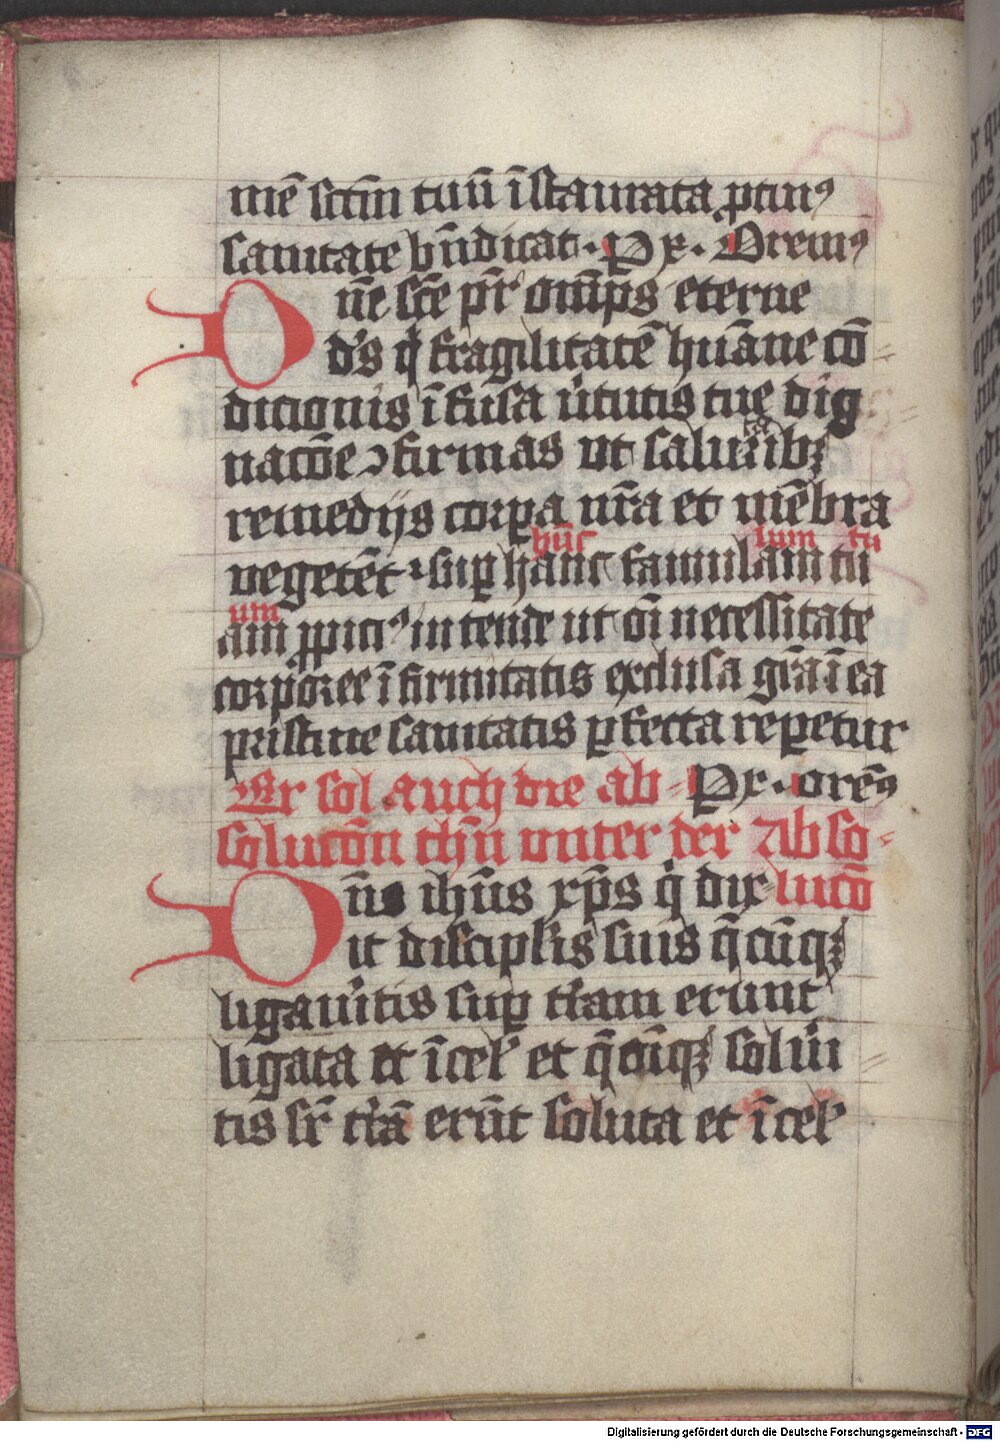 mē sctm̄ tuū īstaurata ꝓtinꝰ
sanitate bn̄dicat · P x · Oremꝰ
Dn̄e scē pr̄ om̄ps eterne
ds q̇ fragilitatē huāne cō
dicionis īfusa v̓tutis tue dig
nacōe ↄfirmas vt saluta ribꝫ
remedijs corpa nr̄a et mēbra
hūc lum tu
vegetēt · suꝑ hanc famulam tu
um
am ꝓpiciꝰ intende ut oī necessitate
corporee īfirmitatis exclusa grā ī ea
pristine sanitatis ꝑfecta reꝑetur
Er sol auch die ab P x · orēꝰ
solucōn thūn vnter der Abso
Dn̄e ihūs xp̄s q̇ dix lucō
it discipl̓is suis q̄cūqꝫ
ligau̓itis suꝑ tr̓am erunt
ligata et ī cel̓ et q̄cūqꝫ solui̓
tis sr̄ tr̓ā erūt soluta et ī cel̓
Digitalisierung gefördert durch die Deutsche Forschungsgemeinschaft - DFG